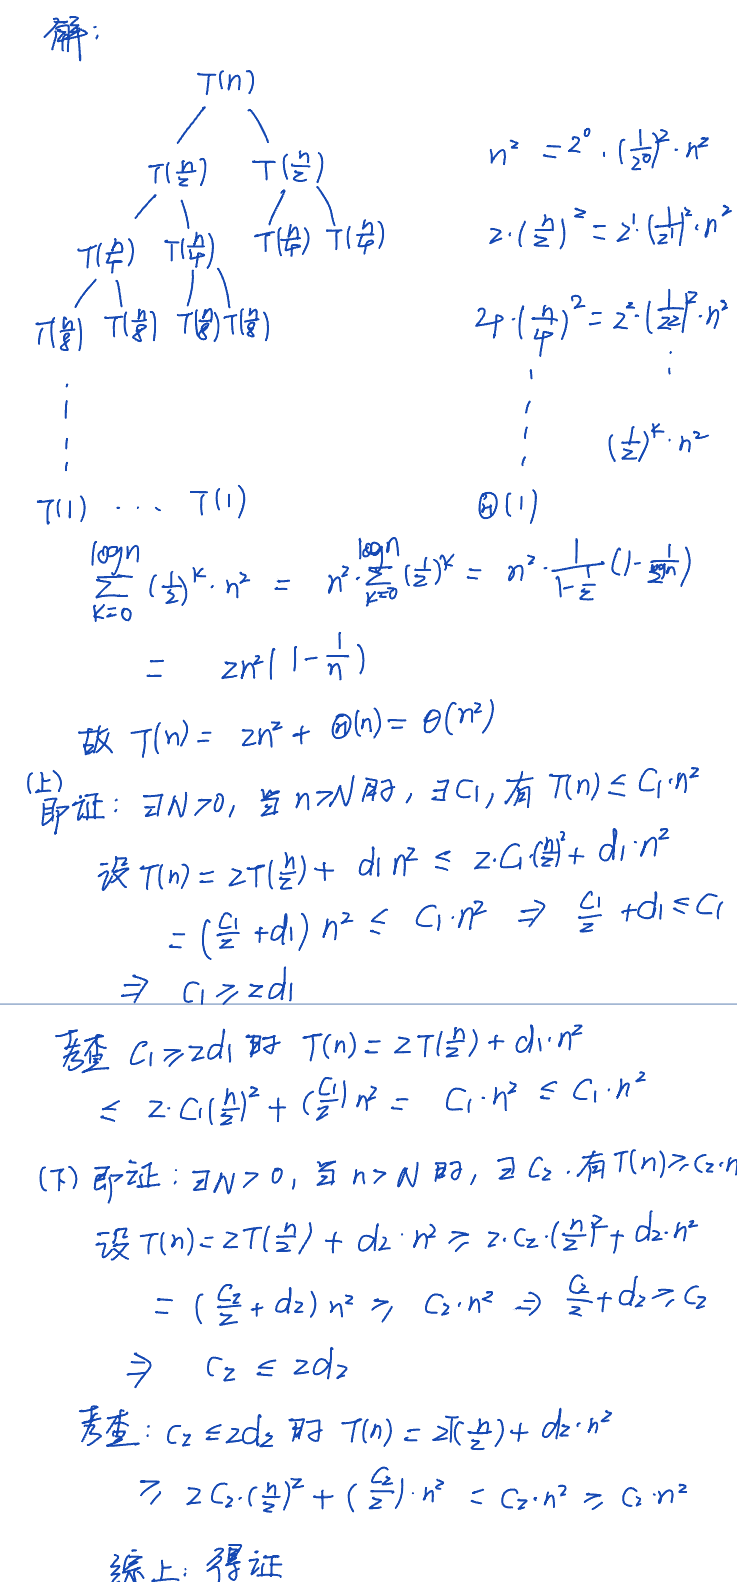 解：
T(n)
T(n/2) T(n/2) n² = 2⁰ · (1/2⁰)² · n²
T(n/4) T(n/4) T(n/4) T(n/4) 2·(n/2)² = 2¹·(1/2¹)²·n²
T(n/8) T(n/8) T(n/8) T(n/8) 4·(n/4)² = 2²·(1/2²)²·n²
(1/2)^k · n²
T(1) ... T(1) Θ(1)
∑_{k=0}^{logn} (1/2)^k · n² = n² · ∑_{k=0}^{logn} (1/2)^k = n² · 1/(1-1/2) (1 - 1/2^{logn})
= 2n² (1 - 1/n)
故 T(n) = 2n² + Θ(n) = θ(n²)
(上)
即证: ∃N>0, 当 n>N 时, ∃C₁, 有 T(n) ≤ C₁·n²
设 T(n) = 2T(n/2) + d₁n² ≤ 2·C₁·(n/2)² + d₁·n²
= (C₁/2 + d₁) n² ≤ C₁·n² ⇒ C₁/2 + d₁ ≤ C₁
⇒ C₁ ≥ 2d₁
考查 C₁ ≥ 2d₁ 时 T(n) = 2T(n/2) + d₁·n²
≤ 2·C₁(n/2)² + (C₁/2) n² = C₁·n² ≤ C₁·n²
(下) 即证: ∃N>0, 当 n>N 时, ∃C₂. 有 T(n) ≥ C₂·n
设 T(n) = 2T(n/2) + d₂·n² ≥ 2·C₂·(n/2)² + d₂·n²
= (C₂/2 + d₂) n² ≥ C₂·n² ⇒ C₂/2 + d₂ ≥ C₂
⇒ C₂ ≤ 2d₂
考查: C₂ ≤ 2d₂ 时 T(n) = 2T(n/2) + d₂·n²
≥ 2C₂·(n/2)² + (C₂/2)·n² = C₂·n² ≥ C₂·n²
综上: 得证